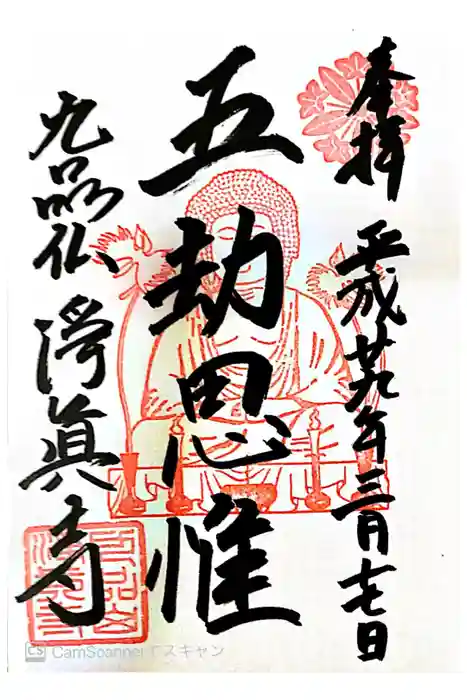 奉拝 平成廿九年三月十七日
五劫思惟
九品仏 浄眞寺
CS CamScannerでスキャン